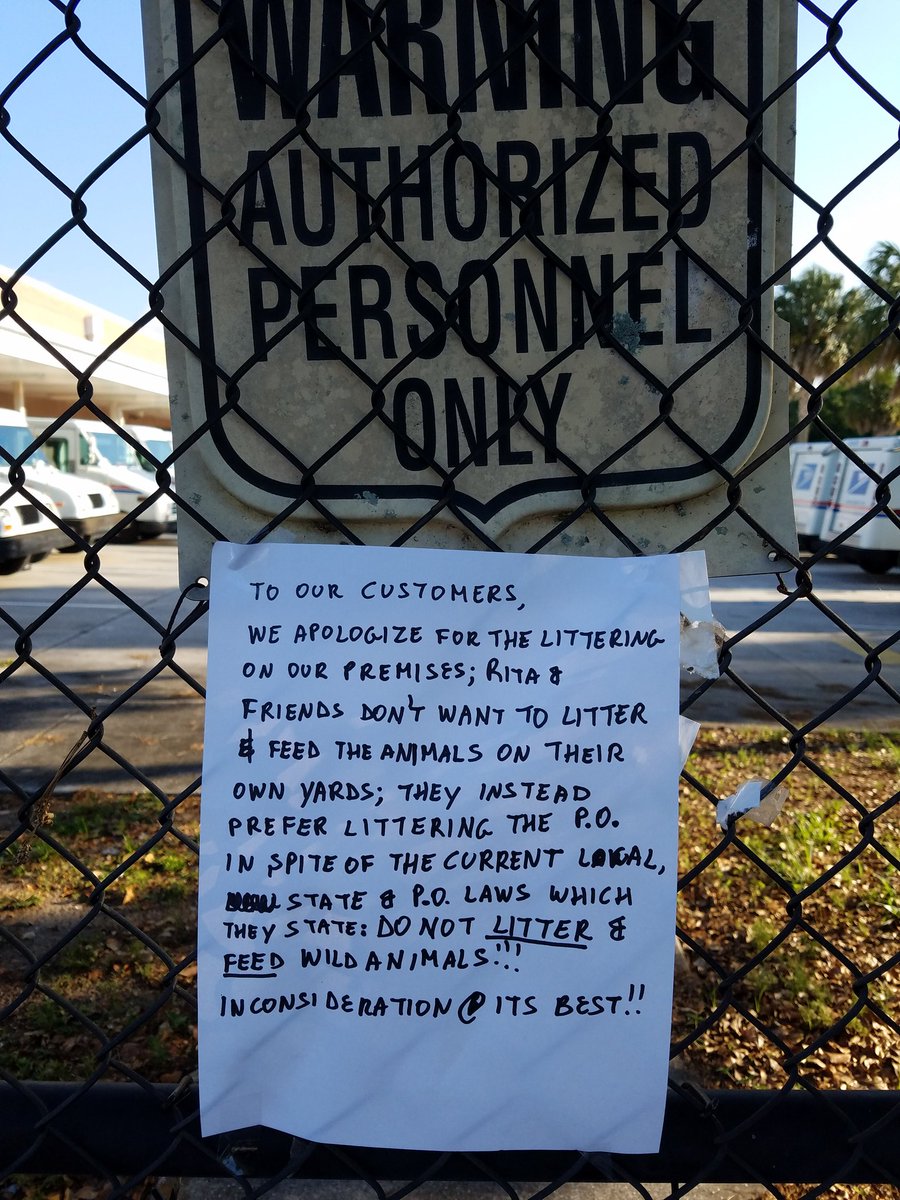 WARNING
AUTHORIZED
PERSONNEL
ONLY
TO OUR CUSTOMERS,
WE APOLOGIZE FOR THE LITTERING
ON OUR PREMISES; RITA &
FRIENDS DON'T WANT TO LITTER
& FEED THE ANIMALS ON THEIR
OWN YARDS; THEY INSTEAD
PREFER LITTERING THE P.O.
IN SPITE OF THE CURRENT LOCAL,
STATE & P.O. LAWS WHICH
THEY STATE: DO NOT LITTER &
FEED WILD ANIMALS!!!
INCONSIDERATION @ ITS BEST!!